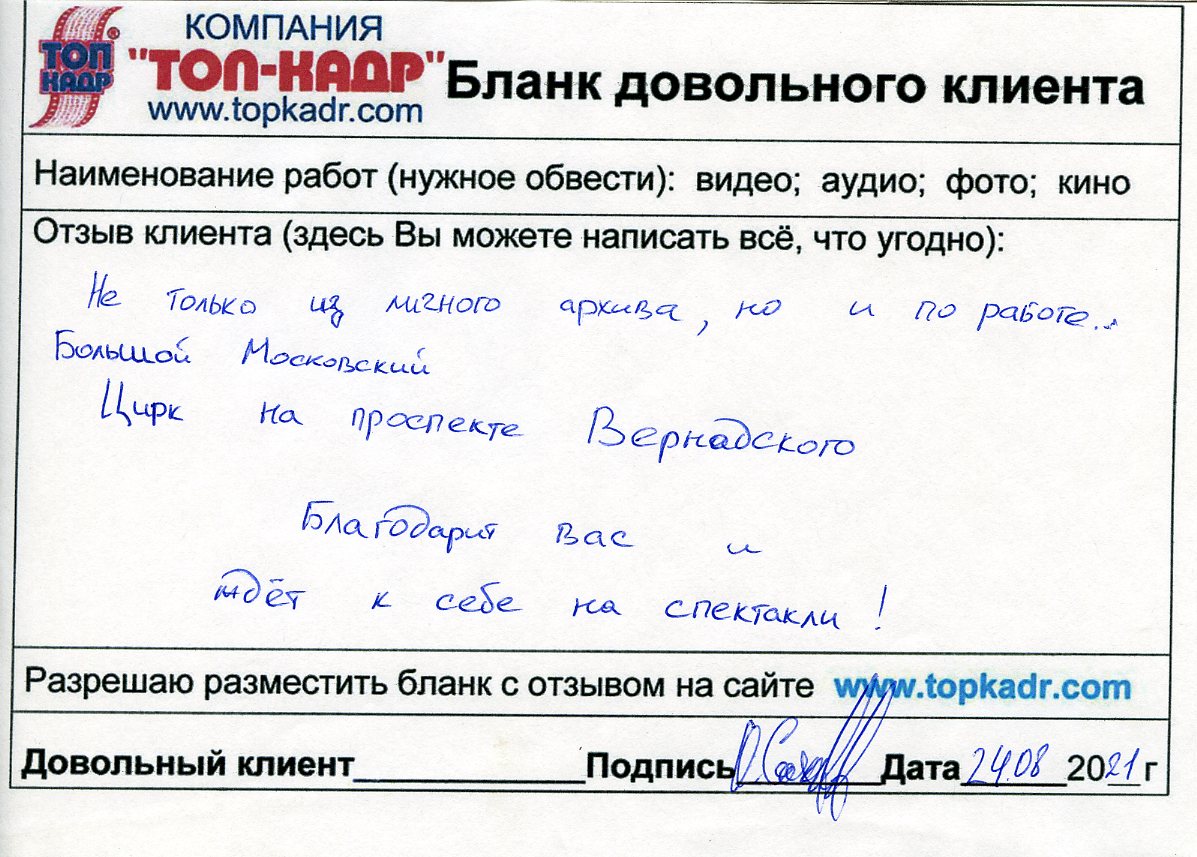 КОМПАНИЯ
ТОП КАДР
"ТОП-КАДР"
www.topkadr.com
Бланк довольного клиента
Наименование работ (нужное обвести): видео; аудио; фото; кино
Отзыв клиента (здесь Вы можете написать всё, что угодно):
Не только из личного архива, но и по работе...
Большой Московский
Цирк на проспекте Вернадского
Благодарит вас и
ждёт к себе на спектакли!
Разрешаю разместить бланк с отзывом на сайте www.topkadr.com
Довольный клиент____________Подпись________Дата 24.08 2021 г